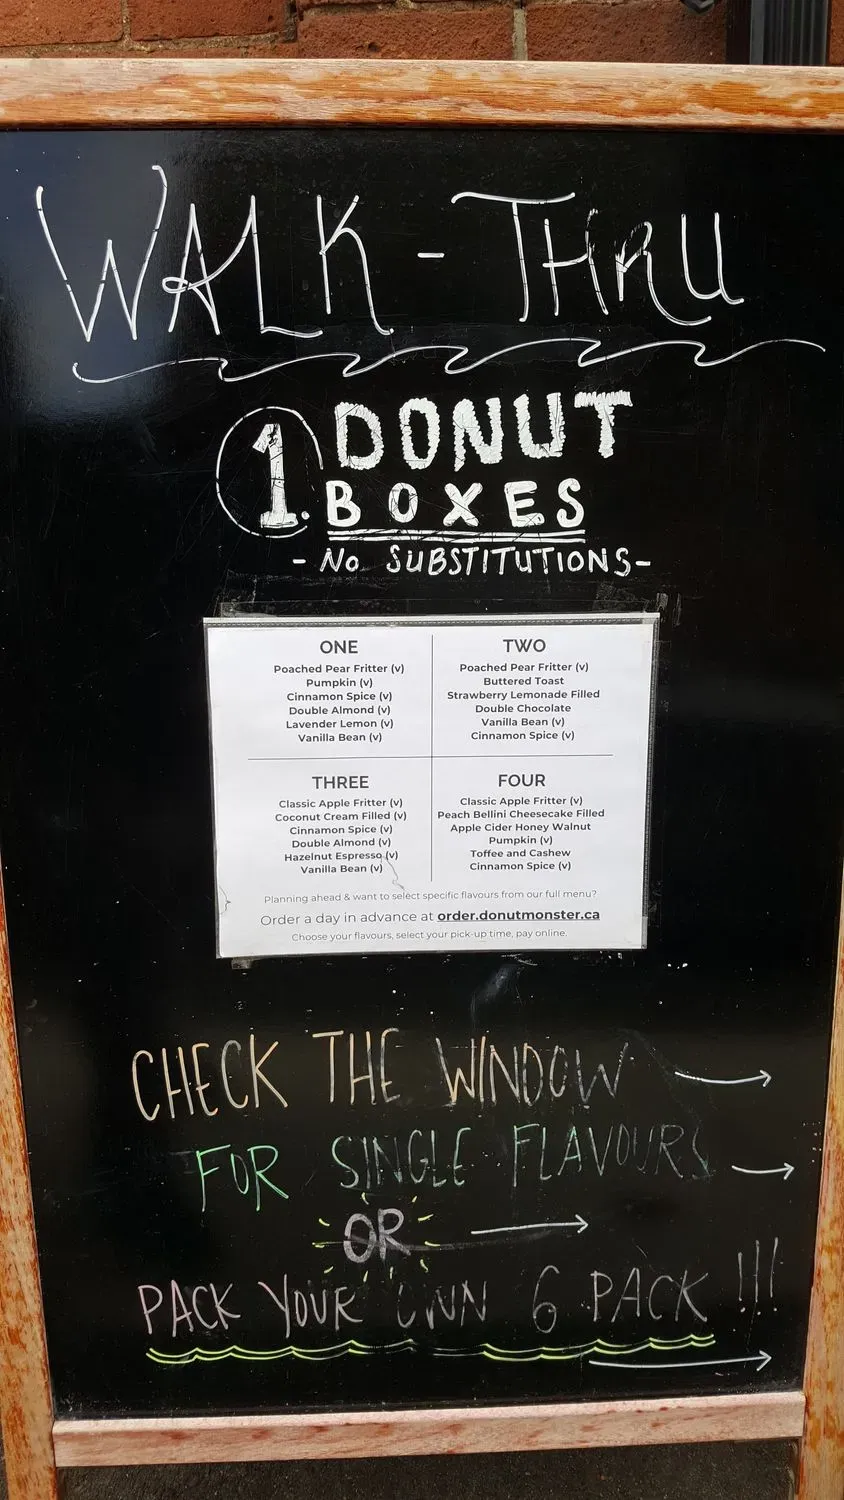 WALK-THRU
1. DONUT
BOXES
- No SUBSTITUTIONS-
ONE
Poached Pear Fritter (v)
Pumpkin (v)
Cinnamon Spice (v)
Double Almond (v)
Lavender Lemon (v)
Vanilla Bean (v)
TWO
Poached Pear Fritter (v)
Buttered Toast
Strawberry Lemonade Filled
Double Chocolate
Vanilla Bean (v)
Cinnamon Spice (v)
THREE
Classic Apple Fritter (v)
Coconut Cream Filled (v)
Cinnamon Spice (v)
Double Almond (v)
Hazelnut Espresso (v)
Vanilla Bean (v)
FOUR
Classic Apple Fritter (v)
Peach Bellini Cheesecake Filled
Apple Cider Honey Walnut
Pumpkin (v)
Toffee and Cashew
Cinnamon Spice (v)
Planning ahead & want to select specific flavours from our full menu?
Order a day in advance at order.donutmonster.ca
Choose your flavours, select your pick-up time, pay online.
CHECK THE WINDOW →
FOR SINGLE FLAVOURS →
OR →
PACK YOUR OWN 6 PACK !!!